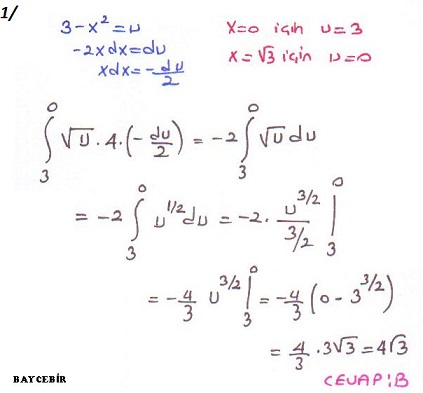 1/
3-x² = u
-2xdx = du
xdx = -du/2
x=0 için u=3
x=√3 için u=0
∫₃⁰ √u · 4 · (-du/2) = -2 ∫₃⁰ √u du
= -2 ∫₃⁰ u^{1/2} du = -2 · u^{3/2}/(3/2) |₃⁰
= -4/3 u^{3/2} |₃⁰ = -4/3 (0 - 3^{3/2})
= 4/3 · 3√3 = 4√3
CEVAP : B
BAYCEBİR